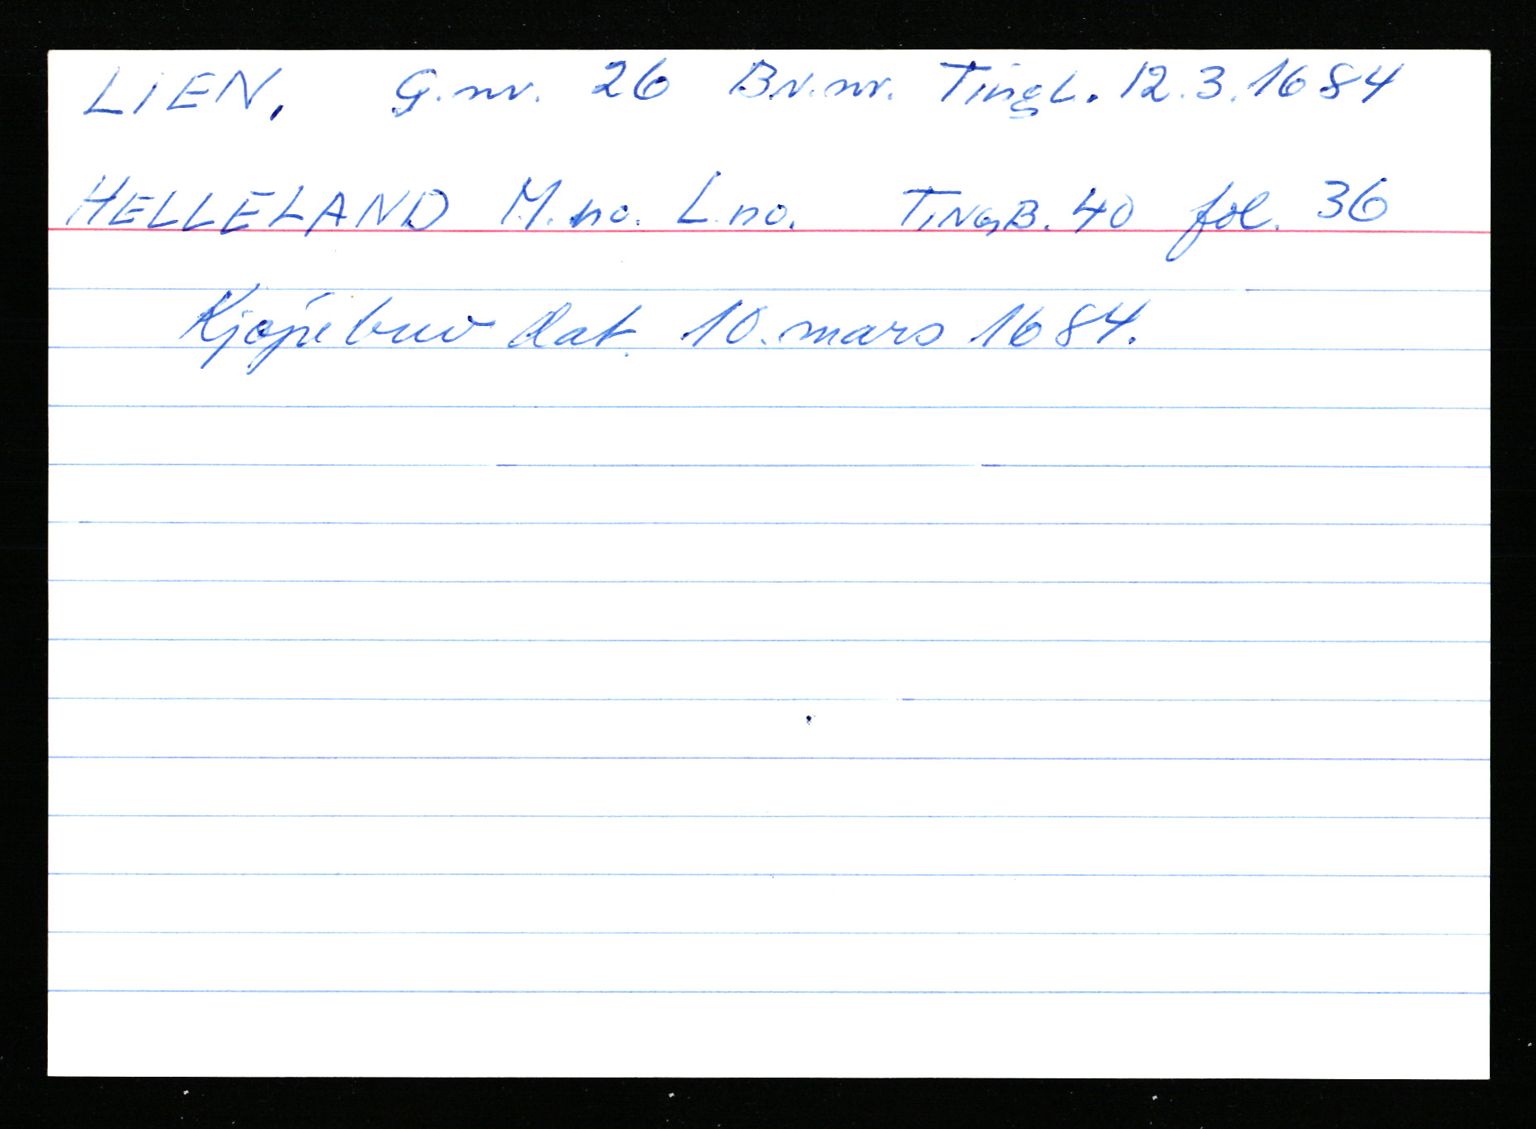 LIEN. G.nr. 26 Br.nr. Tingl. 12.3.1684
HELLELAND M.no. L.no. TINGB. 40 fol. 36
Kjøpebrev dat. 10. mars 1684.